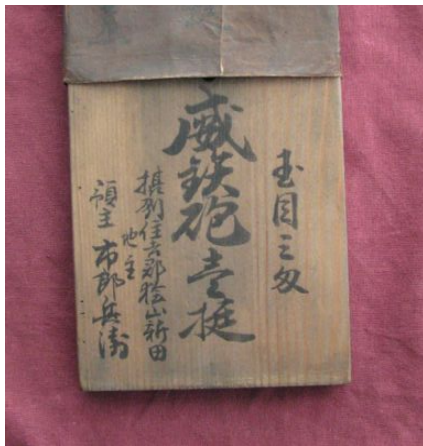 玉目三匁
威鉄砲壱挺
摂州住吉郡桧山新田
地主
預主 市郎兵衛